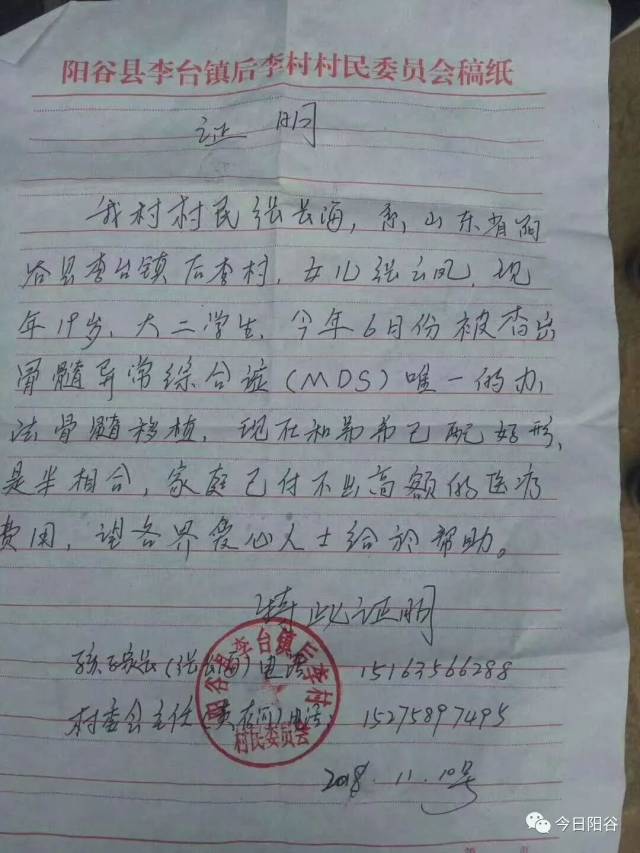 阳谷县李台镇后李村村民委员会稿纸
证明
我村村民张长海，系山东省阳
谷县李台镇后李村，女儿张云凤，现
年19岁，大二学生，今年6月份被查出
骨髓异常综合症（MDS）唯一的办
法骨髓移植，现在和弟弟已配好形，
是半相合，家庭已付不出高额的医疗
费用，望各界爱心人士给於帮助。
特此证明
孩子家长（张长海）电话：15163566288
村委会主任 在河）电话：15275897495
阳谷县李台镇后李村
村民委员会
2018.11.10号
今日阳谷
第 页